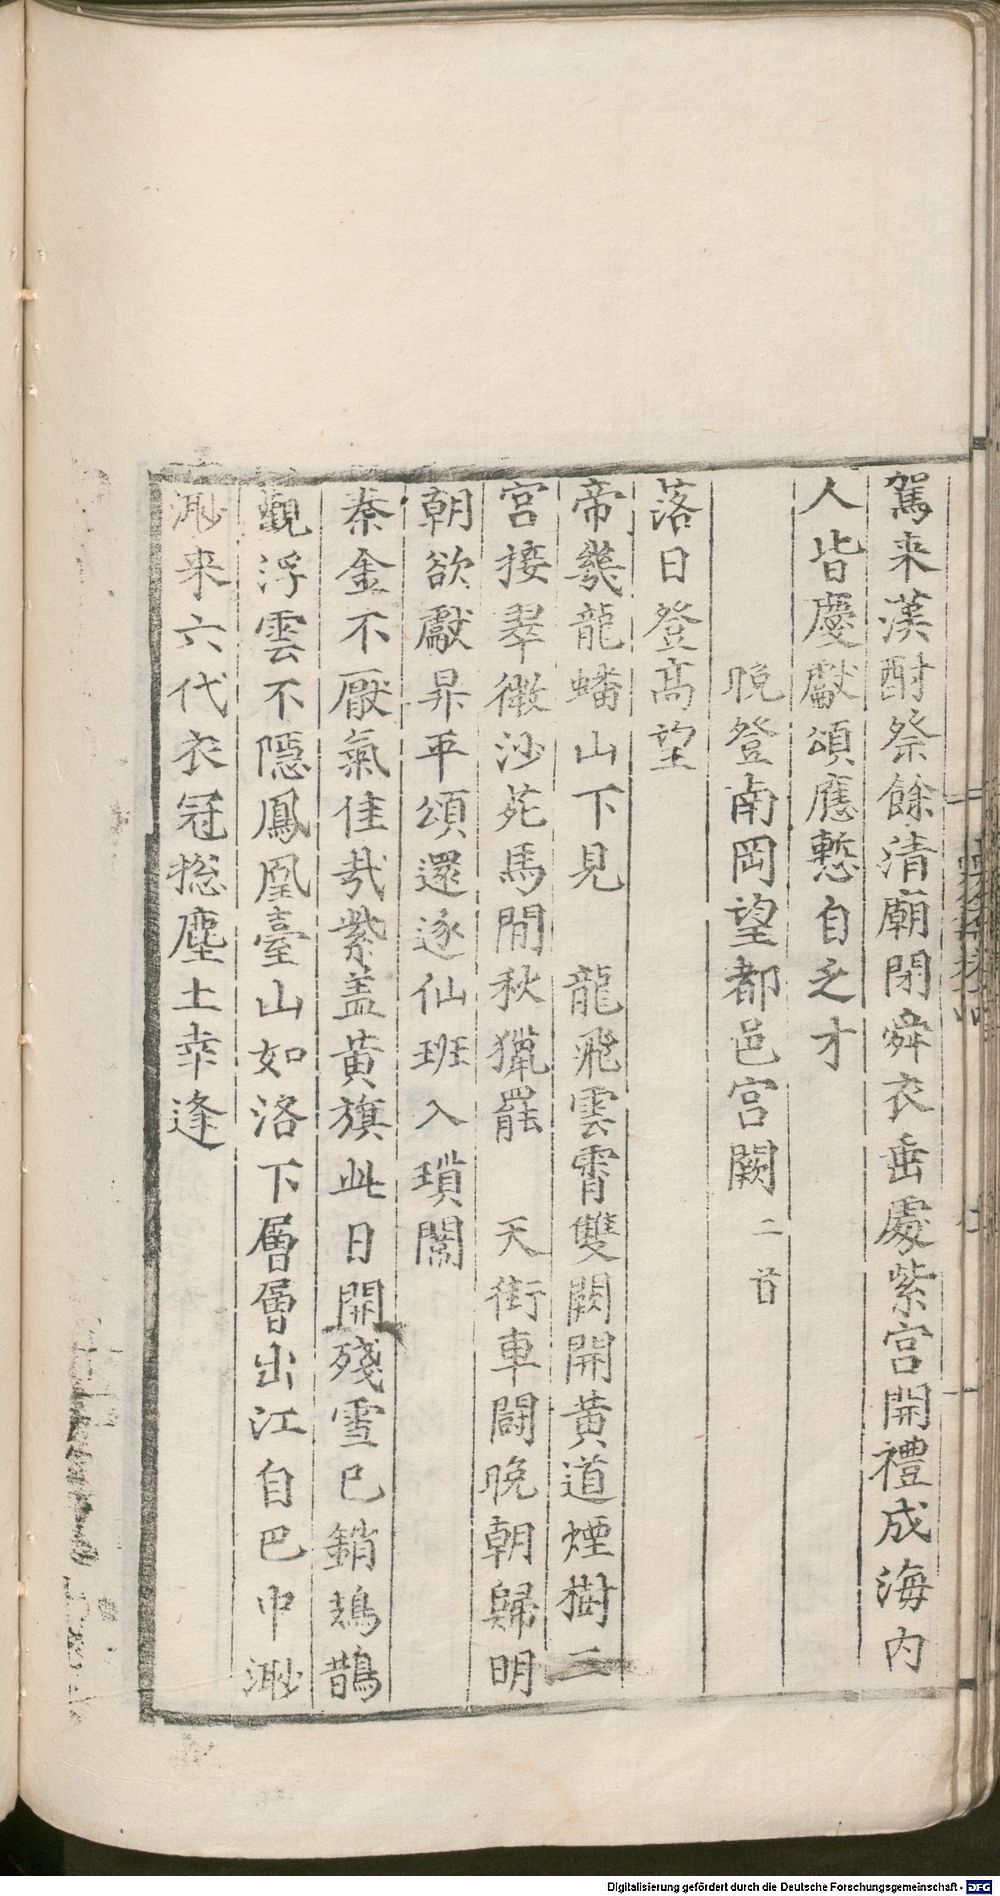 駕来漢酎祭餘清廟閉舜衣垂處紫宮開禮成海内
人皆慶獻頌應慙自乏才
晩登南岡望都邑宮闕 二首
落日登髙望
帝畿龍蟠山下見 龍飛雲霄雙闕開黄道煙樹三
宮接翠微沙苑馬閒秋獵罷 天街車鬪晩朝歸明
朝欲獻昇平頌還逐仙班入瑣闈
秦金不厭氣佳哉紫盖黄旗此日開殘雪已銷鳷鵲
觀浮雲不隱鳳凰臺山如洛下層層出江自巴中渺
渺来六代衣冠揔塵土幸逢
Digitalisierung gefördert durch die Deutsche Forschungsgemeinschaft - DFG